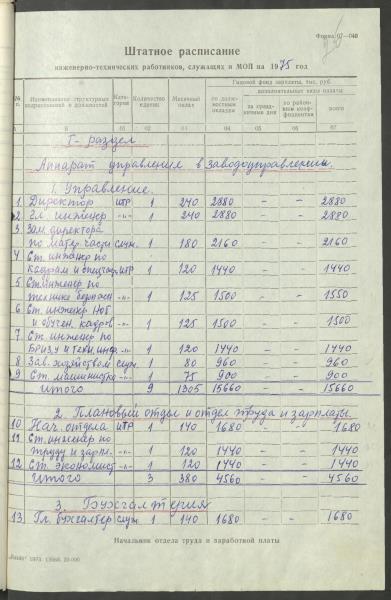 Форма 07-040
Штатное расписание
инженерно-технических работников, служащих и МОП на 1975 год
№ п. Наименование структурных подразделений и должностей Категория Количество единиц Месячный оклад Годовой фонд зарплаты, тыс. руб.
по должностным окладам дополнительные виды оплаты всего
за праздничные дни по районн. коэффициентам
А Б В 02 03 04 05 06 07
I- раздел
Аппарат управления в заводоуправлении
1. Управление.
1. Директор ИТР 1 240 2880 - - 2880
2. Гл. инженер -"- 1 240 2880 - - 2880
3. Зам. директора
по матер. части служ. 1 180 2160 - - 2160
4 Ст. инженер по
кадрам и спецчасти ИТР 1 120 1440 - - 1440
5 Ст. инженер по
технике безопасн -"- 1 125 1500 - - 1550
6 Ст. инженер НОТ
и обучен. кадров -"- 1 125 1500 - - 1500
7 Ст. инженер по
Бризу и техн. инф. -"- 1 120 1440 - - 1440
8 Зав. хозяйством служ 1 80 960 - - 960
9 Ст. машинистка -"- 1 75 900 - - 900
Итого 9 1305 15660 - - 15660
2. Плановый отдел и отдел труда и зарплаты.
10 Нач. отдела ИТР 1 140 1680 - - 1680
11 Ст. инженер по
труду и зарпл. -"- 1 120 1440 - - 1440
12 Ст. экономист -"- 1 120 1440 - - 1440
Итого 3 380 4560 - - 4560
3. Бухгалтерия
13 Гл. бухгалтер служ 1 140 1680 - - 1680
Начальник отдела труда и заработной платы